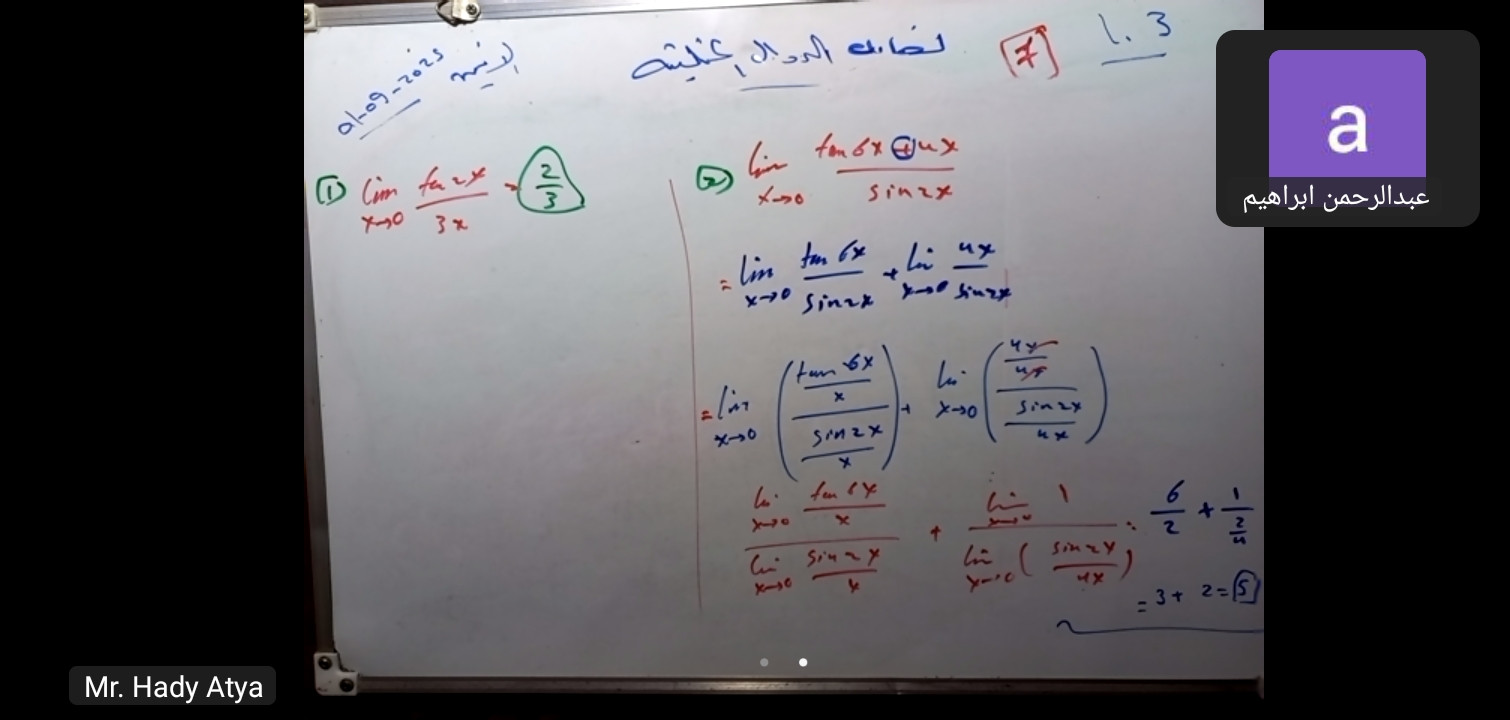 1.3
[7]
الدوال
الاثنين
01-09-2025
① lim x→0 tan 2x / 3x = 2/3
② lim x→0 (tan 6x + 4x) / sin 2x
= lim x→0 tan 6x / sin 2x + lim x→0 4x / sin 2x
= lim x→0 ((tan 6x / x) / (sin 2x / x)) + lim x→0 ((4x / 4x) / (sin 2x / 4x))
(lim x→0 tan 6x / x) / (lim x→0 sin 2x / x) + (lim x→0 1) / (lim x→0 (sin 2x / 4x)) = 6/2 + 1/(2/4)
= 3 + 2 = 5
a
عبدالرحمن ابراهيم
Mr. Hady Atya